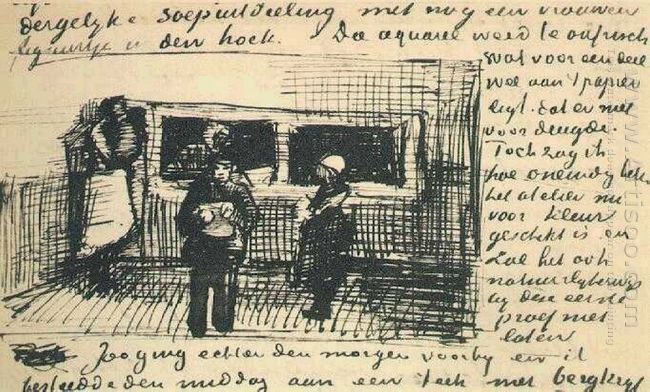 dergelyke soepuitdeeling met nog een vrouwen
figuurtje in den hoek. Die aquarel werd te onfrisch
wat voor een deel
wel aan 't papier
ligt. dat er niet
voor deugde.
Toch zag ik
hoe oneindig
het atelier nu
voor kleur
geschikt is en
zal het ook
natuurlijkerwijs
by deze eerste
proef niet
laten
Zoo ging echter den morgen voorby en ik
besteedde den middag aan een teek met bergkryt